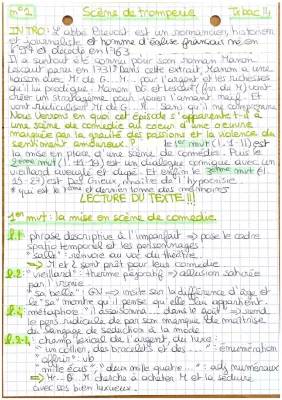 n°2 Scène de tromperie Tbac !!
INTRO : L'abbé Prévost est un romancier, historien
et journaliste et homme d'église français né en
et décédé en 1763.
Il a surtout été connu pour son roman Manon
Lescaut paru en 1731. Dans cet extrait Manon a une
liaison avec Mr de G... M... pour l'argent et les richesses
qu'il lui prodigue. Manon, DG et Lescaut (frr de M) vont
créer un stratagème pour duper l'amant naïf. Et
vont ridiculiser Mr de G... M... sans qu'il ne comprenne
Nous verrons en quoi cet épisode s'apparente-t-il à
une scène de comédie au coeur d'une oeuvre
marquée par la gravité des passions et la violence du
sentiment amoureux ? le 1er mvt (l. 1-11) est
la mise en place d'une scène de comédie. Puis le
2eme mvt (l. 11-) est un dialogue comique avec un
vieillard aveuglé et dupé. Et enfin le 3eme mvt (l.
-27) est Des Grieux, maître de l'hypocrisie
* qui est le et dernier tome des mémoires
LECTURE DU TEXTE !!
1er mvt : la mise en scène de comédie
l.1 : phrase descriptive à l'imparfait => pose le cadre
spatio temporel et les personnages
"salle" : renvoie au voc du théâtre
=> M et L sont prêt pour leur comédie
l.2 : "vieillard" : terme péjoratif => allusion satirique
par l'ironie
"sa belle" : GN => insite son la différence d'âge et
le "sa" montre qu'il pense qu'elle lui appartient.
l. : métaphore "il assaisonna... dans le goût" => rend
le pers ridicule de par son manque de maîtrise
du langage de séduction à la mode
l.2- : champ lexical de l'argent, du luxe :
"un collier, des bracelets et des ..." : énumération
"offrir" : vb
"mille écus", "deux mille quatre..." : adj numéraux
=> M... G... M cherche à acheter M et la séduire
avec ses bien luxueux.